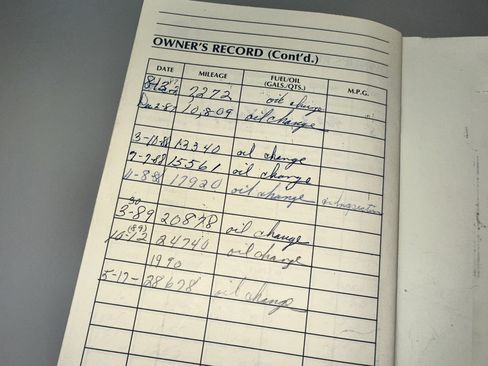 OWNER'S RECORD (Cont'd.)
DATE MILEAGE FUEL/OIL (GALS./QTS.) M.P.G.
87
7272 oil change
Dec 2-87 10,809 oil change
3-10-88 13340 oil change
7-7-88 15561 oil change
11-8-88 17920 oil change
30
3-89 20878 oil change
(89)
10-12 24740 oil change
1990
5-17- 28678 oil change